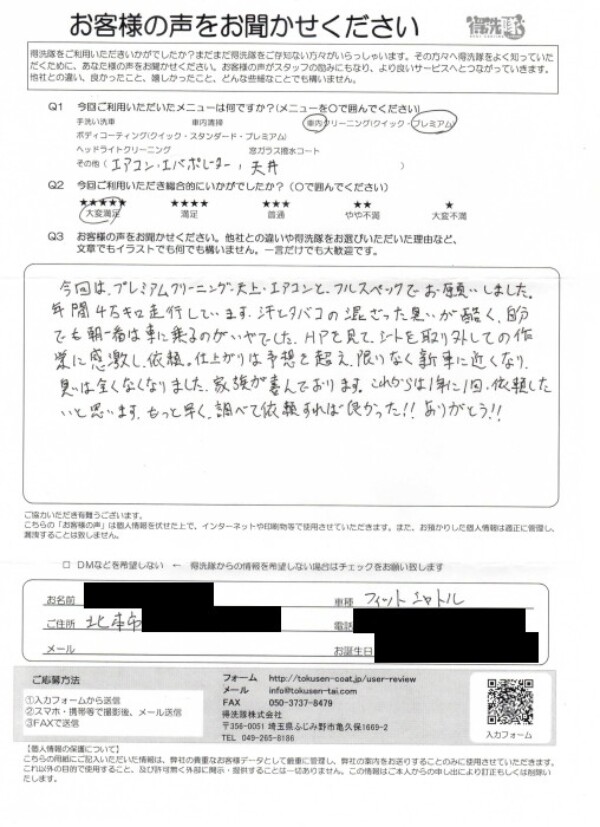 お客様の声をお聞かせください
得洗隊
得洗隊をご利用いただきいかがでしたか?まだまだ得洗隊をご存知ない方々がいらっしゃいます。その方々へ得洗隊をよく知っていた
だくために、あなた様の声をお聞かせください。お客様の声がスタッフの励みにもなり、より良いサービスへとつながっていきます。
他社との違い、良かったこと、嬉しかったこと、どんな些細なことでも構いません。
Q1 今回ご利用いただいたメニューは何ですか?(メニューを○で囲んでください)
手洗い洗車 車内清掃 車内クリーニング(クイック・プレミアム)
ボディコーティング(クイック・スタンダード・プレミアム)
ヘッドライトクリーニング 窓ガラス撥水コート
その他(エアコン・エバポレーター,天井)
Q2 今回ご利用いただき総合的にいかがでしたか?(○で囲んでください)
★★★★★ ★★★★ ★★★ ★★ ★
大変満足 満足 普通 やや不満 大変不満
Q3 お客様の声をお聞かせください。他社との違いや得洗隊をお選びいただいた理由など、
文章でもイラストでも何でも構いません。一言だけでも大歓迎です。
今回は、プレミアムクリーニング・天上・エアコンと、フルスペックでお願いしました。
年間4万キロ走行しています。汗とタバコの混ざった臭いが酷く、自分
でも朝一番は車に乗るのがいやでした。HPを見て、シートを取り外しての作
業に感激し、依頼。仕上がりは予想を超え、限りなく新車に近くなり、
臭いは全くなくなりました。家族が喜んでおります。これからは1年に1回、依頼した
いと思います。もっと早く、調べて依頼すれば良かった!! ありがとう!!
ご協力いただき有難うございます。
こちらの「お客様の声」は個人情報を伏せた上で、インターネットや印刷物等で使用させていただきます。また、お預かりした個人情報は適正に管理し、
漏洩することは致しません。
□ DMなどを希望しない ← 得洗隊からの情報を希望しない場合はチェックをお願い致します
お名前 車種 フィットシャトル
ご住所 北本市 電話
メール お誕生日
ご応募方法
①入力フォームから送信
②スマホ・携帯等で撮影後、メール送信
③FAXで送信
フォーム http://tokusen-coat.jp/user-review
メール info@tokusen-tai.com
FAX 050-3737-8479
得洗隊株式会社
〒356-0051 埼玉県ふじみ野市亀久保1669-2
TEL 049-265-8186
入力フォーム
【個人情報の保護について】
こちらの用紙にご記入いただいた情報は、弊社の貴重なお客様データとして厳重に管理し、弊社の案内をお送りすることのみに使用させていただきます。
これ以外の目的で使用すること、及び許可無く外部に開示・提供することは一切ありません。この情報はご本人からの申し出により訂正もしくは削除い
たします。